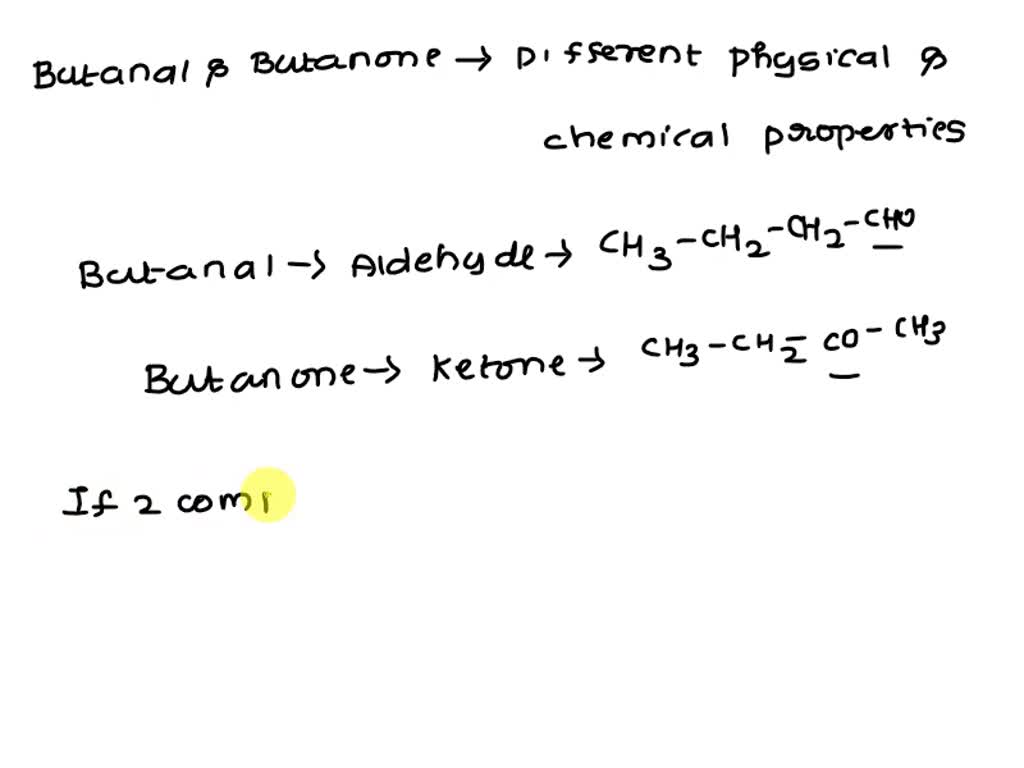 Butanal & Butanone → Different physical &
chemical properties
Butanal → Aldehyde → CH3-CH2-CH2-CHO
Butanone → Ketone → CH3-CH2-CO-CH3
If 2 com